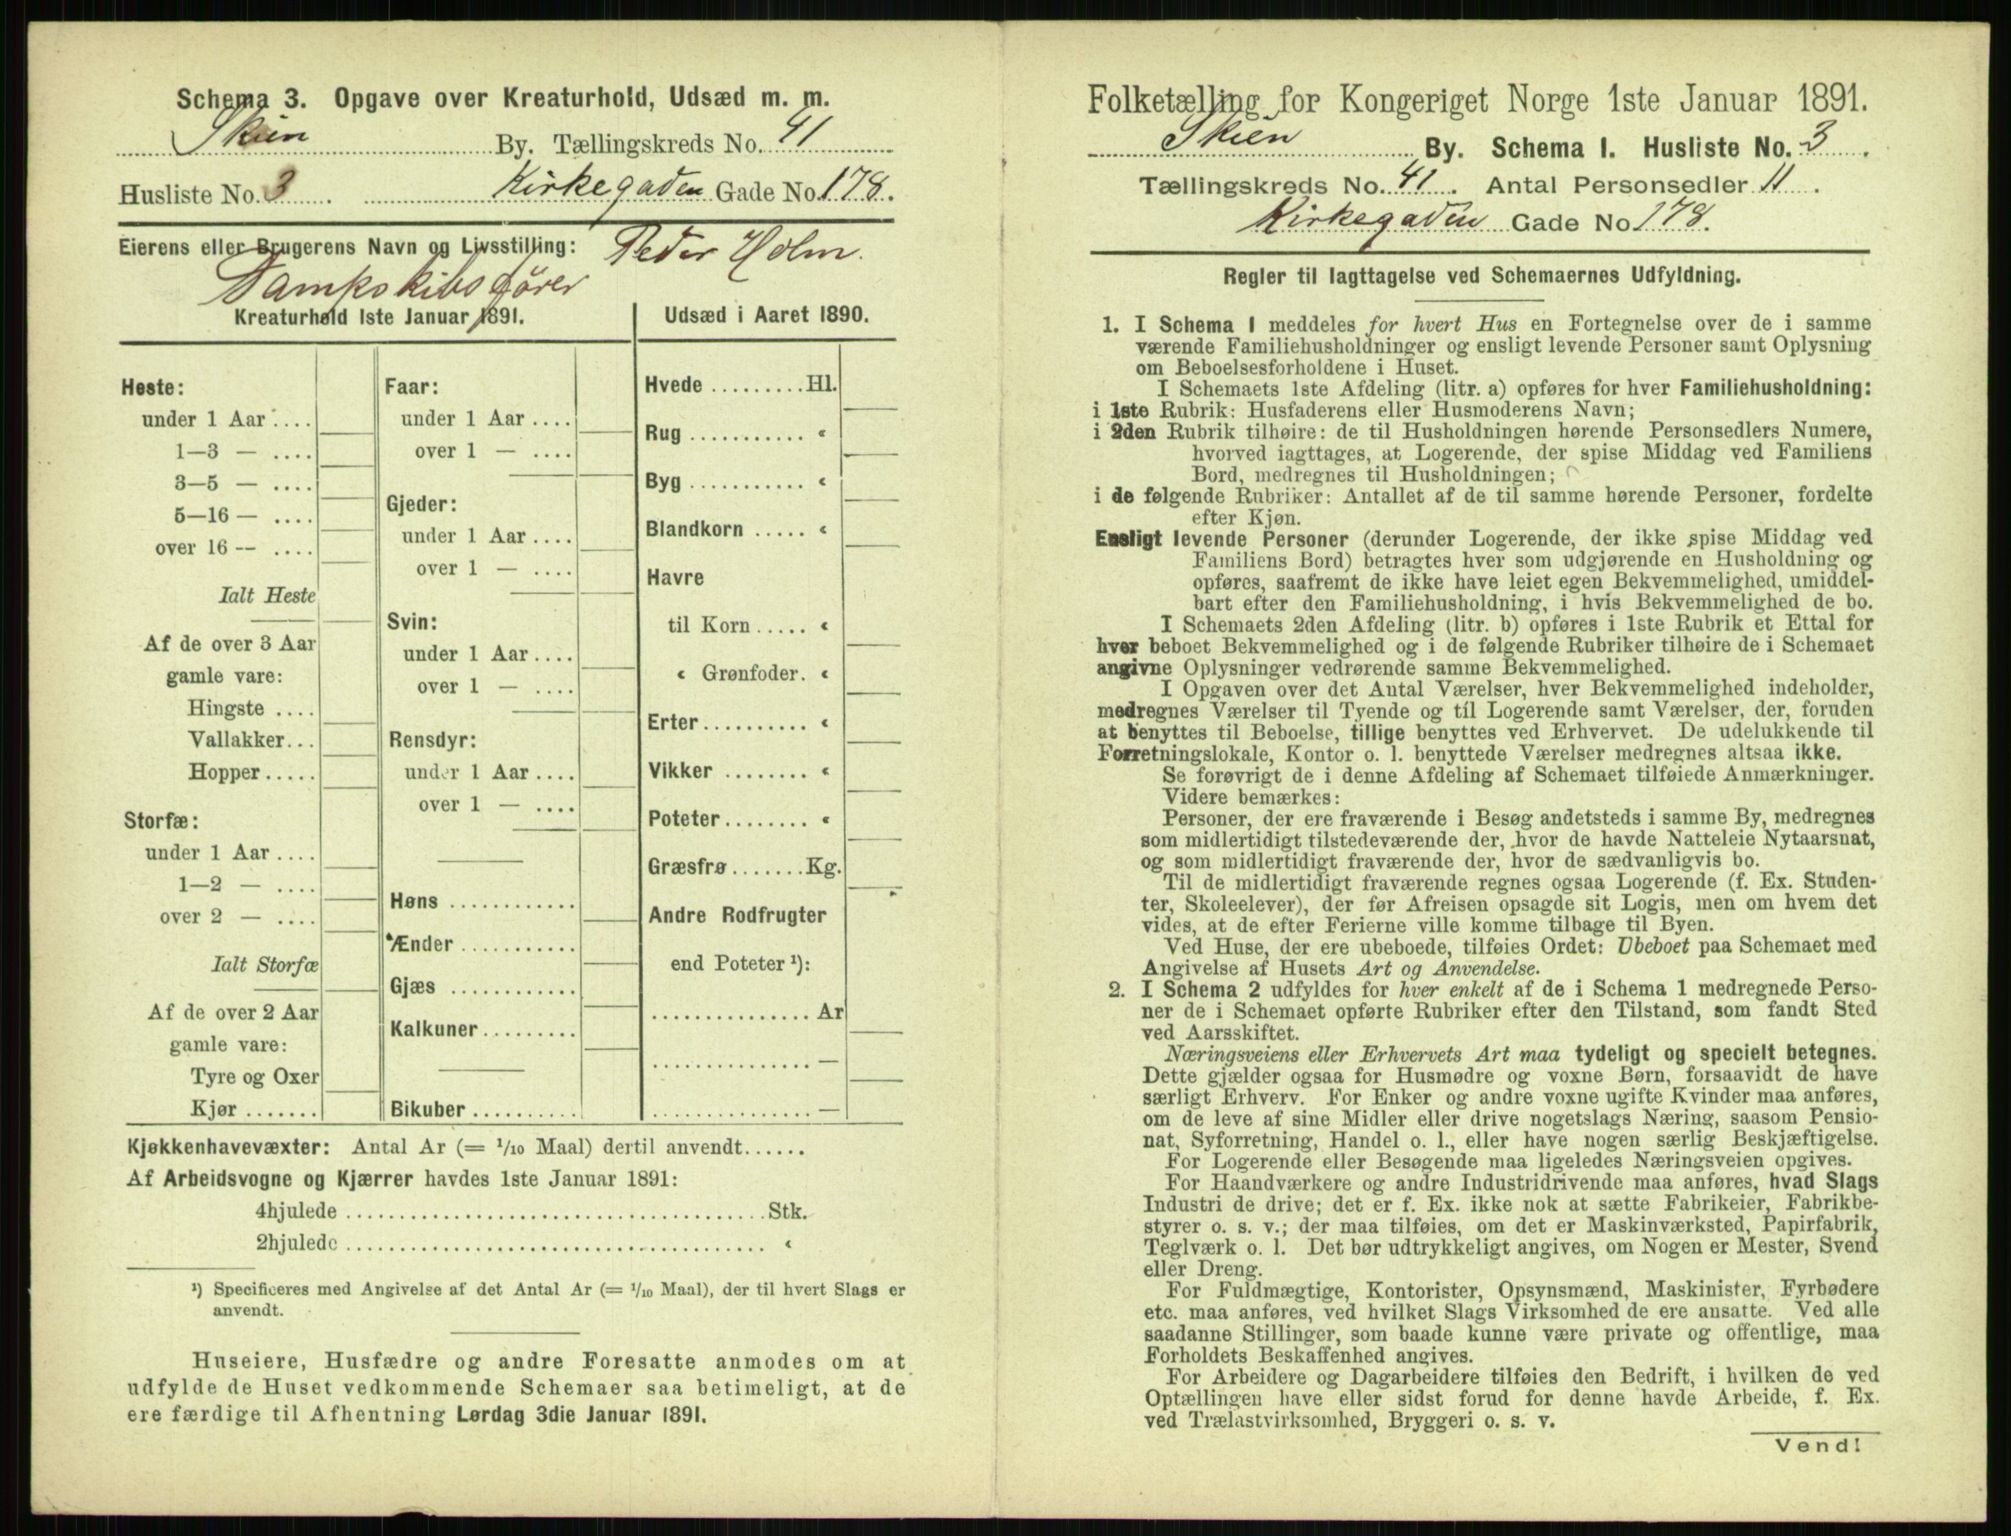 Schema 3. Opgave over Kreaturhold, Udsæd m. m.
Skien By. Tællingskreds No. 41
Husliste No. 3 . Kirkegaden Gade No. 178.
Eierens eller Brugerens Navn og Livsstilling: Peder Holm.
Dampskibsfører
Kreaturhold 1ste Januar 1891.
Heste:
under 1 Aar ....
1—3 — ....
3—5 — ....
5—16 — ....
over 16 — ....
Ialt Heste
Af de over 3 Aar
gamle vare:
Hingste ....
Vallakker...
Hopper.....
Storfæ:
under 1 Aar ....
1—2 — ....
over 2 — ....
Ialt Storfæ
Af de over 2 Aar
gamle vare:
Tyre og Oxer
Kjør.......
Faar:
under 1 Aar ....
over 1 — ....
Gjeder:
under 1 Aar ....
over 1 — ....
Svin:
under 1 Aar ....
over 1 — ....
Rensdyr:
under 1 Aar ....
over 1 — ....
Høns ............
Ænder ...........
Gjæs ............
Kalkuner.........
Bikuber ..........
Udsæd i Aaret 1890.
Hvede .........Hl.
Rug ........... «
Byg ........... «
Blandkorn ..... «
Havre
til Korn ..... «
« Grønfoder. «
Erter.......... «
Vikker ........ «
Poteter........ «
Græsfrø.......Kg.
Andre Rodfrugter
end Poteter ¹):
............... Ar
............... —
............... —
Kjøkkenhavevæxter: Antal Ar (= 1/10 Maal) dertil anvendt......
Af Arbeidsvogne og Kjærrer havdes 1ste Januar 1891:
4hjulede .......................................Stk.
2hjulede ....................................... «
¹) Specificeres med Angivelse af det Antal Ar (= 1/10 Maal), der til hvert Slags er
anvendt.
Huseiere, Husfædre og andre Foresatte anmodes om at
udfylde de Huset vedkommende Schemaer saa betimeligt, at de
ere færdige til Afhentning Lørdag 3die Januar 1891.
Folketælling for Kongeriget Norge 1ste Januar 1891.
Skien By. Schema I. Husliste No. 3 .
Tællingskreds No. 41 . Antal Personsedler 11 .
Kirkegaden Gade No. 178.
Regler til Iagttagelse ved Schemaernes Udfyldning.
1. I Schema 1 meddeles for hvert Hus en Fortegnelse over de i samme
værende Familiehusholdninger og ensligt levende Personer samt Oplysning
om Beboelsesforholdene i Huset.
I Schemaets 1ste Afdeling (litr. a) opføres for hver Familiehusholdning:
i 1ste Rubrik: Husfaderens eller Husmoderens Navn;
i 2den Rubrik tilhøire: de til Husholdningen hørende Personsedlers Numere,
hvorved iagttages, at Logerende, der spise Middag ved Familiens
Bord, medregnes til Husholdningen;
i de følgende Rubriker: Antallet af de til samme hørende Personer, fordelte
efter Kjøn.
Ensligt levende Personer (derunder Logerende, der ikke spise Middag ved
Familiens Bord) betragtes hver som udgjørende en Husholdning og
opføres, saafremt de ikke have leiet egen Bekvemmelighed, umiddel-
bart efter den Familiehusholdning, i hvis Bekvemmelighed de bo.
I Schemaets 2den Afdeling (litr. b) opføres i 1ste Rubrik et Ettal for
hver beboet Bekvemmelighed og i de følgende Rubriker tilhøire de i Schemaet
angivne Oplysninger vedrørende samme Bekvemmelighed.
I Opgaven over det Antal Værelser, hver Bekvemmelighed indeholder,
medregnes Værelser til Tyende og til Logerende samt Værelser, der, foruden
at benyttes til Beboelse, tillige benyttes ved Erhvervet. De udelukkende til
Forretningslokale, Kontor o. l. benyttede Værelser medregnes altsaa ikke.
Se forøvrigt de i denne Afdeling af Schemaet tilføiede Anmærkninger.
Videre bemærkes:
Personer, der ere fraværende i Besøg andetsteds i samme By, medregnes
som midlertidigt tilstedeværende der, hvor de havde Natteleie Nytaarsnat,
og som midlertidigt fraværende der, hvor de sædvanligvis bo.
Til de midlertidigt fraværende regnes ogsaa Logerende (f. Ex. Studen-
ter, Skoleelever), der før Afreisen opsagde sit Logis, men om hvem det
vides, at de efter Ferierne ville komme tilbage til Byen.
Ved Huse, der ere ubeboede, tilføies Ordet: Ubeboet paa Schemaet med
Angivelse af Husets Art og Anvendelse.
2. I Schema 2 udfyldes for hver enkelt af de i Schema 1 medregnede Perso-
ner de i Schemaet opførte Rubriker efter den Tilstand, som fandt Sted
ved Aarsskiftet.
Næringsveiens eller Erhvervets Art maa tydeligt og specielt betegnes.
Dette gjælder ogsaa for Husmødre og voxne Børn, forsaavidt de have
særligt Erhverv. For Enker og andre voxne ugifte Kvinder maa anføres,
om de leve af sine Midler eller drive nogetslags Næring, saasom Pensio-
nat, Syforretning, Handel o. l., eller have nogen særlig Beskjæftigelse.
For Logerende eller Besøgende maa ligeledes Næringsveien opgives.
For Haandværkere og andre Industridrivende maa anføres, hvad Slags
Industri de drive; det er f. Ex. ikke nok at sætte Fabrikeier, Fabrikbe-
styrer o. s. v.; der maa tilføies, om det er Maskinværksted, Papirfabrik,
Teglværk o. l. Det bør udtrykkeligt angives, om Nogen er Mester, Svend
eller Dreng.
For Fuldmægtige, Kontorister, Opsynsmænd, Maskinister, Fyrbødere
etc. maa anføres, ved hvilket Slags Virksomhed de ere ansatte. Ved alle
saadanne Stillinger, som baade kunne være private og offentlige, maa
Forholdets Beskaffenhed angives.
For Arbeidere og Dagarbeidere tilføies den Bedrift, i hvilken de ved
Optællingen have eller sidst forud for denne havde Arbeide, f. Ex.
ved Trælastvirksomhed, Bryggeri o. s. v.
Vend!